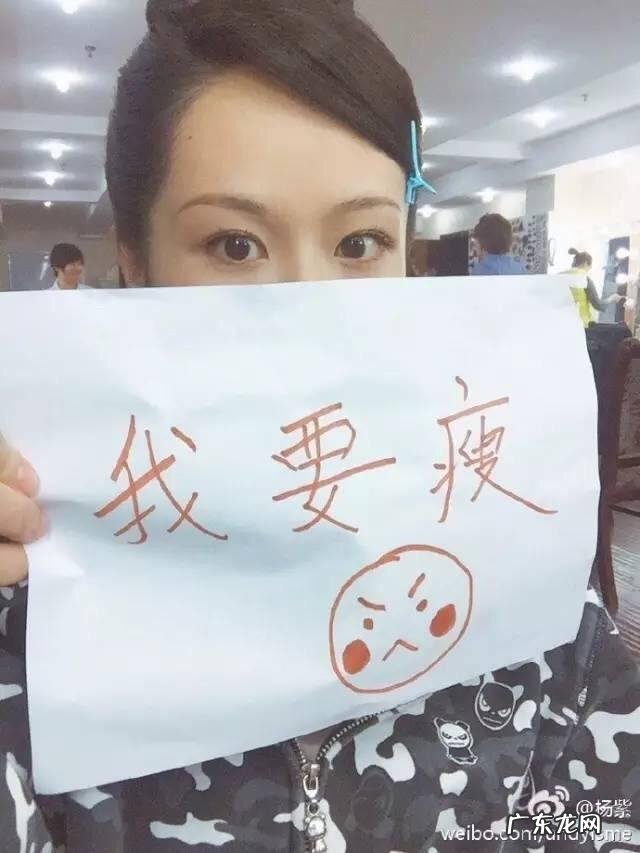 我要瘦
@杨紫
weibo.com/andyisme
广东龙网